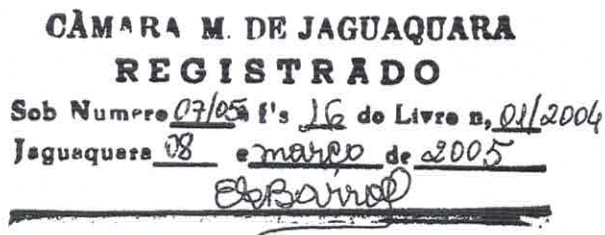 CÂMARA M. DE JAGUAQUARA
REGISTRADO
Sob Numero 07/05 à f's 16 do Livro n, 01/2004
Jaguaquara 08 e março de 2005